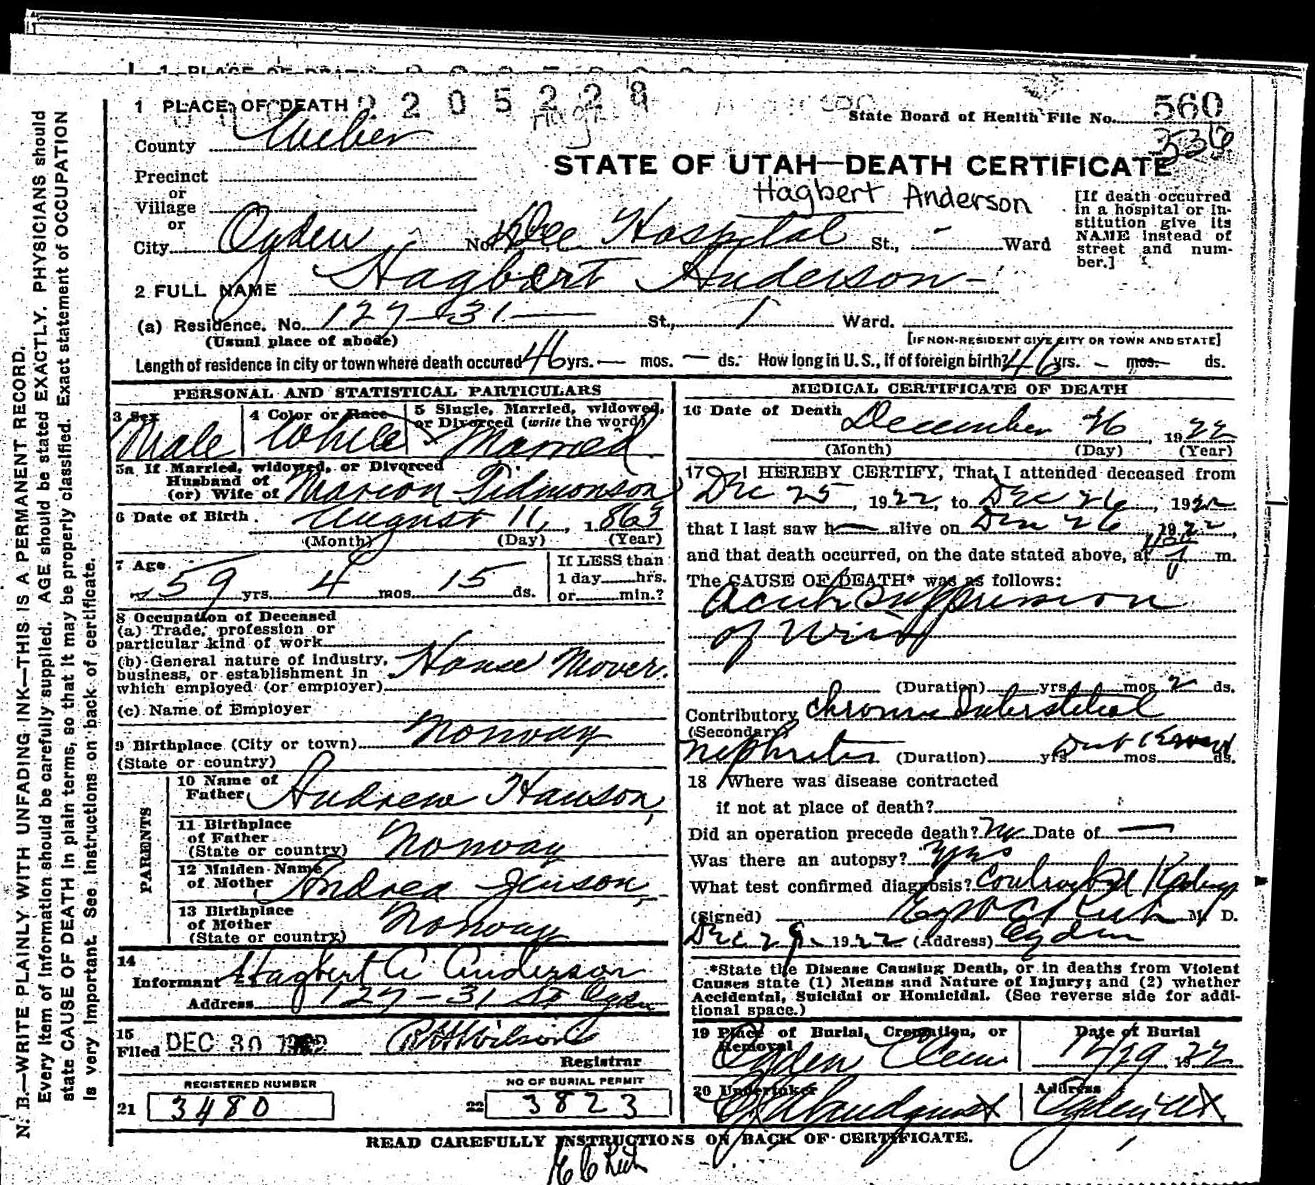 1 PLACE OF DEATH
2205228
State Board of Health File No. 560
336
County Weber
STATE OF UTAH—DEATH CERTIFICATE
Precinct
or
Village
or
City Ogden No. Dee Hospital St., - Ward
Hagbert Anderson
[If death occurred in a hospital or institution give its NAME instead of street and number.]
2 FULL NAME Hagbert Anderson -
(a) Residence. No. 127-31- St., 1 Ward.
(Usual place of abode)
[IF NON-RESIDENT GIVE CITY OR TOWN AND STATE]
Length of residence in city or town where death occured 46 yrs. — mos. — ds. How long in U. S., if of foreign birth? 46 yrs. - mos. ds.
PERSONAL AND STATISTICAL PARTICULARS
3 Sex Male
4 Color or Race White
5 Single, Married, widowed, or Divorced (write the word) Married
5a If Married, widowed, or Divorced
Husband of
(or) Wife of Marion Tidmonson
6 Date of Birth August 11, 1863
(Month) (Day) (Year)
7 Age 59 yrs. 4 mos. 15 ds.
If LESS than
1 day hrs.
or min.?
8 Occupation of Deceased
(a) Trade, profession or
particular kind of work
(b) General nature of industry,
business, or establishment in
which employed (or employer) House Mover.
(c) Name of Employer
9 Birthplace (City or town) Norway
(State or country)
PARENTS
10 Name of Father Andrew Hanson,
11 Birthplace of Father (State or country) Norway
12 Maiden Name of Mother Andrea Jenson,
13 Birthplace of Mother (State or country) Norway
14
Informant Hagbert A Anderson
Address 127-31 St Ogden
15
Filed DEC 30 1922
Registrar
REGISTERED NUMBER
21 3480
NO OF BURIAL PERMIT
22 3823
MEDICAL CERTIFICATE OF DEATH
16 Date of Death December 26, 1922
(Month) (Day) (Year)
17 I HEREBY CERTIFY, That I attended deceased from
Dec 25, 1922, to Dec 26, 1922
that I last saw h— alive on Dec 26 1922,
and that death occurred, on the date stated above, at m.
The CAUSE OF DEATH* was as follows:
Acute Suppression
of Urine
(Duration) yrs. mos. 2 ds.
Contributory Chronic Interstitial
(Secondary)
Nephritis (Duration) yrs. mos. ds.
18 Where was disease contracted
if not at place of death?
Did an operation precede death? No Date of —
Was there an autopsy? Yes
What test confirmed diagnosis? Contracted Kidneys
(Signed) M. D.
Dec 29, 1922 (Address) Ogden
*State the Disease Causing Death, or in deaths from Violent
Causes state (1) Means and Nature of Injury; and (2) whether
Accidental, Suicidal or Homicidal. (See reverse side for additional space.)
19 Place of Burial, Cremation, or Removal Ogden Cem
Date of Burial 12/29 1922
20 Undertaker
Address Ogden, Ut
READ CAREFULLY INSTRUCTIONS ON BACK OF CERTIFICATE.
E C Rich
N. B.—WRITE PLAINLY WITH UNFADING INK—THIS IS A PERMANENT RECORD.
Every item of information should be carefully supplied. AGE should be stated EXACTLY. PHYSICIANS should
state CAUSE OF DEATH in plain terms, so that it may be properly classified. Exact statement of OCCUPATION
is very important. See instructions on back of certificate.